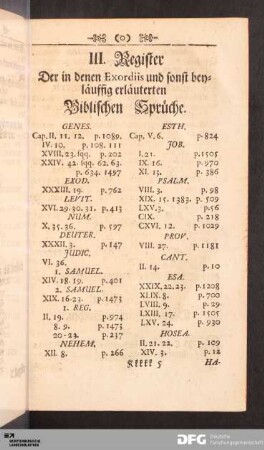 III. Register
Der in denen Exordiis und sonst bey-
läuffig erläuterten
Biblischen Sprüche.
GENES.
Cap. II. 11. 12. p. 1089.
IV. 10. p. 108. 111
XVIII. 23. sqq. p. 202
XXIV. 42. sqq. 62. 63.
p. 634. 1497
EXOD.
XXXIII. 19. p. 762
LEVIT.
XVI. 29. 30. 31. p. 413
NUM.
X. 35. 36. p. 597
DEUTER.
XXXII. 3. p. 147
JUDIC.
VI. 36.
1. SAMUEL.
XIV. 18. 19. p. 401
2. SAMUEL.
XIX. 16-23. p. 1473
1. REG.
II. 19. p. 974
8. 9. p. 1473
20-23. p. 237
NEHEM.
XII. 8. p. 266
ESTH.
Cap. V. 6. p. 824
JOB.
I. 21. p. 1505
IX. 16. p. 970
XI. 13. p. 386
PSALM.
VIII. 3. p. 98
XIX. 15. 1383. p. 509
LXV. 3. p. 56
CIX. p. 218
CXVI. 12. p. 1029
PROV.
VIII. 27. p. 1181
CANT.
II. 14. p. 10
ESA.
XXIX. 22. 23. p. 1208
XLIX. 8. p. 700
LVIII. 9. p. 29
LXIII. 17. p. 1505
LXV. 24. p. 930
HOSEA.
II. 21. 22. p. 109
XIV. 3. p. 12
Kkkkk 5 HA-
DFG Deutsche
Forschungsgemeinschaft